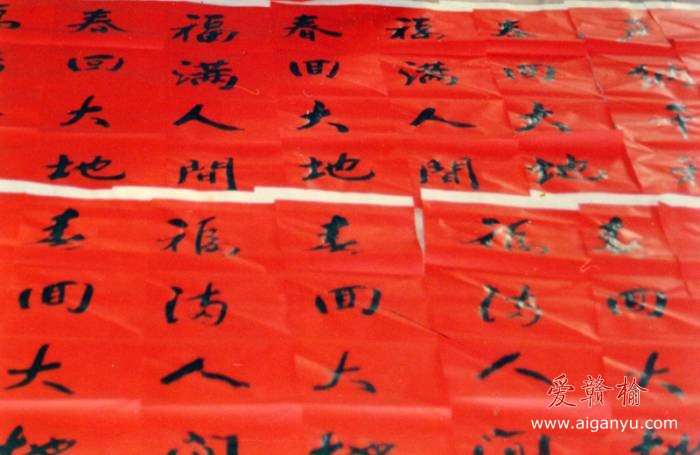 春回大地
福滿人間
春回大地
福滿人間
春回大地
春回大地
福满人间
春回大地
福满人间
春回大地
爱赣榆
www.aiganyu.com